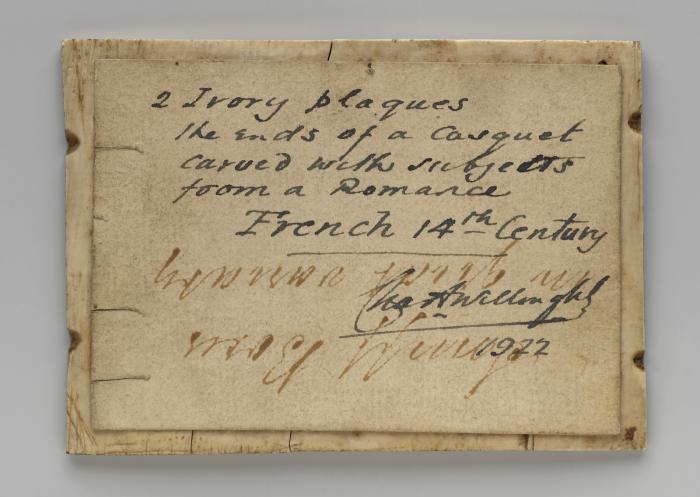 2 Ivory plaques
the ends of a Casquet
carved with subjects
from a Romance
French 14th Century
in great variety
1922